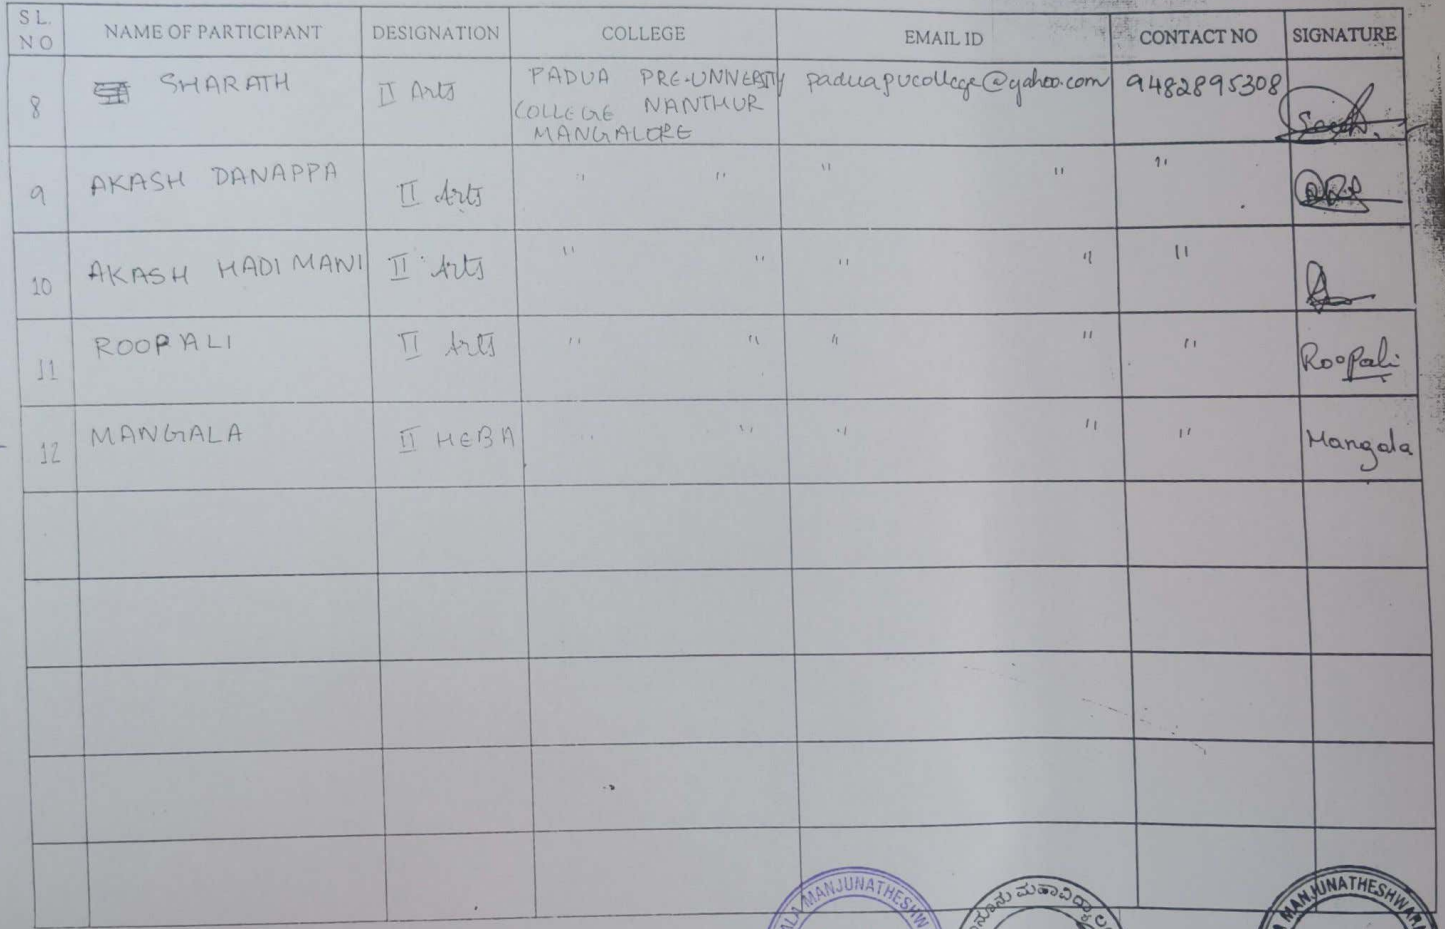 SL. NO NAME OF PARTICIPANT DESIGNATION COLLEGE EMAIL ID CONTACT NO SIGNATURE
8 SHARATH II Arts PADUA PRE-UNIVERSITY paduapucollege@yahoo.com 9482895308
COLLEGE NANTHUR
MANGALORE
9 AKASH DANAPPA II Arts " " " " "
10 AKASH HADIMANI II Arts " " " " "
11 ROOPALI II Arts " " " " " Roopali
12 MANGALA II HEBA " " " " " Mangala
MANJUNATHESHW
ಕಾನೂನು ಮಹಾವಿದ್ಯಾಲ
MANJUNATHESHWARA